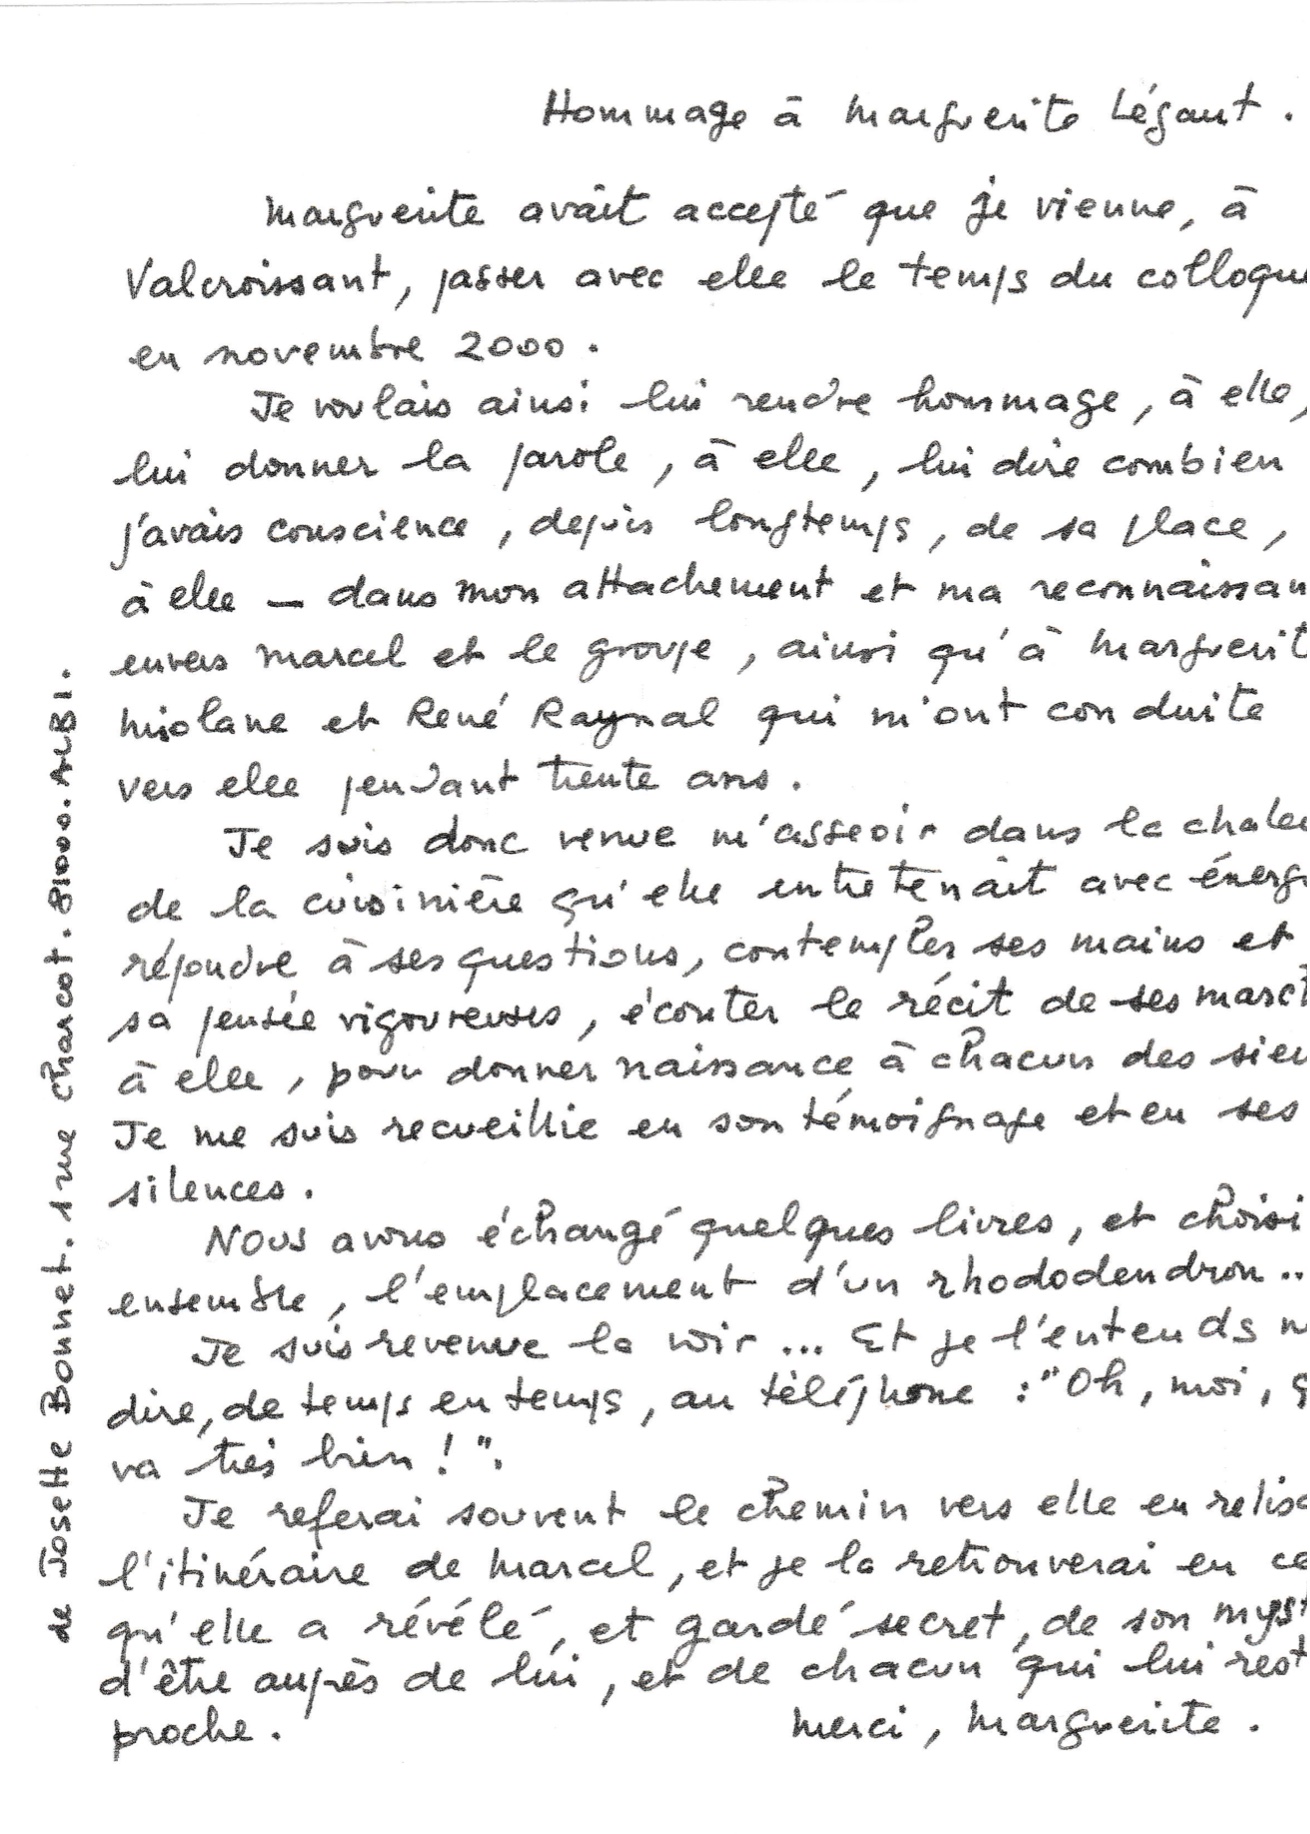 Hommage à Marguerite Légaut.
Marguerite avait accepté que je vienne, à
Valcroissant, passer avec elle le temps du colloque
en novembre 2000.
Je voulais ainsi lui rendre hommage, à elle,
lui donner la parole, à elle, lui dire combien
j'avais conscience, depuis longtemps, de sa place,
à elle — dans mon attachement et ma reconnaissan
envers Marcel et le groupe, ainsi qu'à Marguerit
Miolane et René Raynal qui m'ont conduite
vers elle pendant trente ans.
Je suis donc venue m'asseoir dans la chaleu
de la cuisinière qu'elle entretenait avec énergi
répondre à ses questions, contempler ses mains et
sa pensée vigoureuses, écouter le récit de ses march
à elle, pour donner naissance à chacun des sien
Je me suis recueillie en son témoignage et en ses
silences.
Nous avons échangé quelques livres, et choisi
ensemble, l'emplacement d'un rhododendron..
Je suis revenue la voir... Et je l'entends m
dire, de temps en temps, au téléphone : "Oh, moi, ç
va très bien !".
Je referai souvent le chemin vers elle en relisa
l'itinéraire de Marcel, et je la retrouverai en ce
qu'elle a révélé, et gardé secret, de son myst
d'être auprès de lui, et de chacun qui lui rest
proche. Merci, Marguerite.
de Josette Bonnet. 1 rue Charcot. 81000. ALBI.